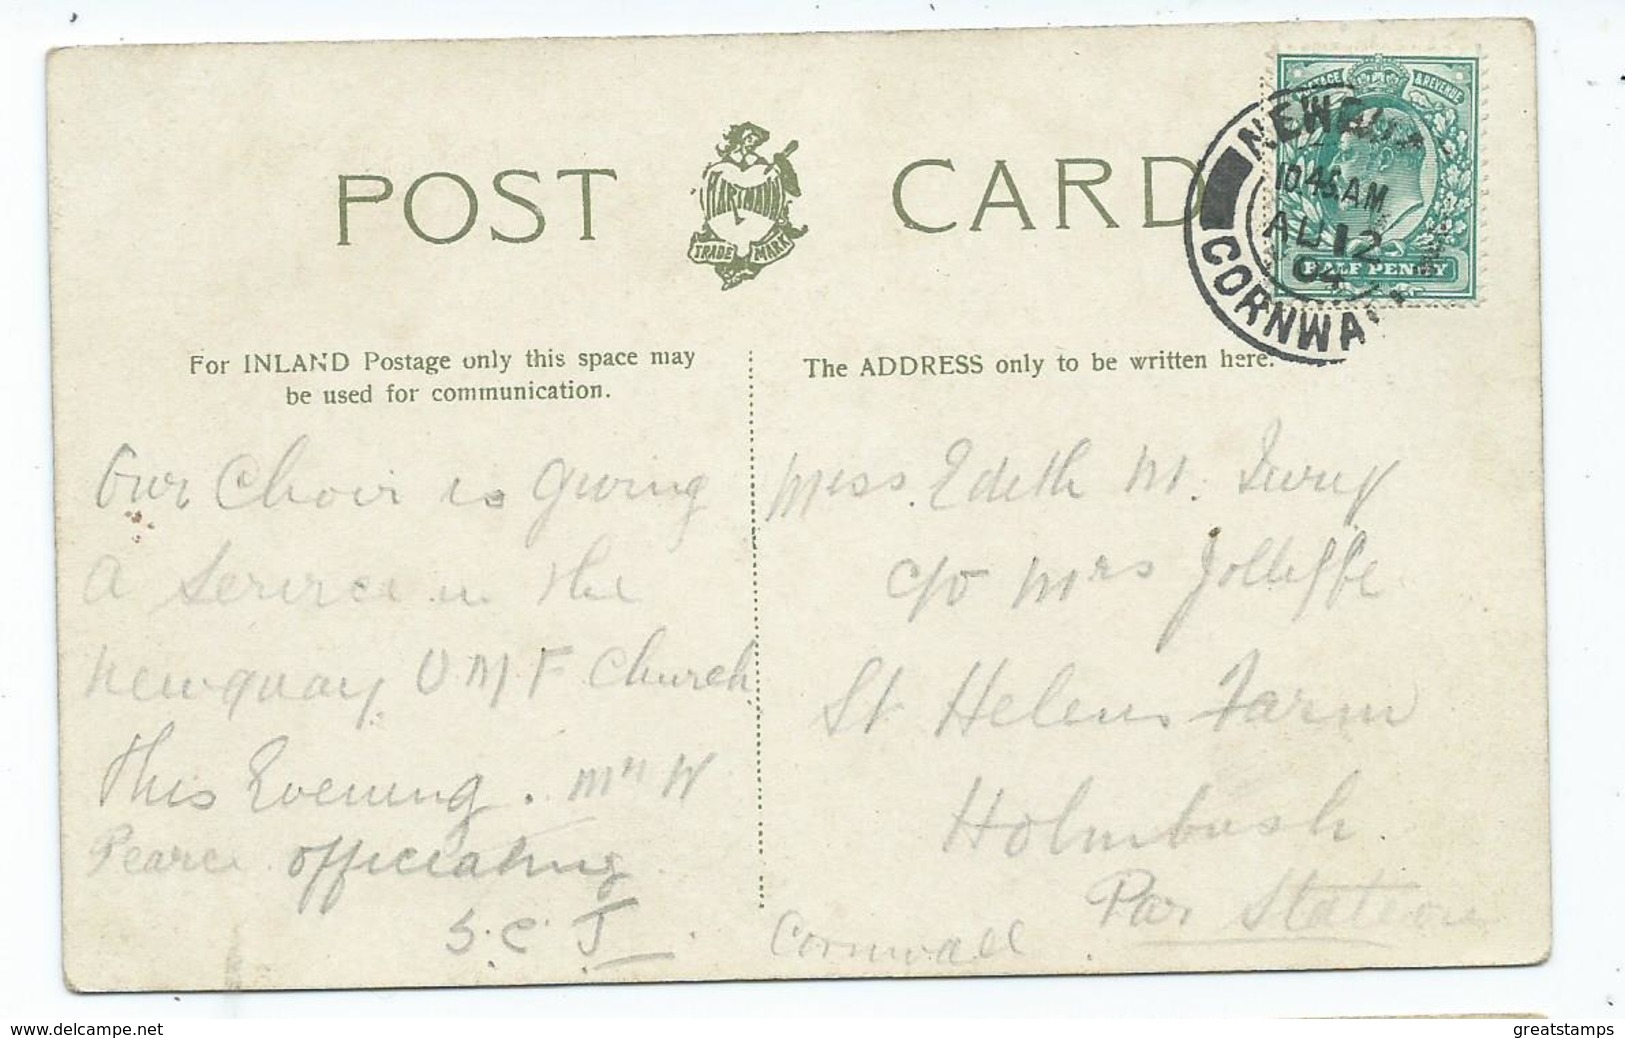 POST CARD
HARTMANN
TRADE MARK
POSTAGE & REVENUE
10.45 AM
AU 12
04
HALF PENNY
CORNWA
For INLAND Postage only this space may
be used for communication.
The ADDRESS only to be written here.
Our Choir is giving
a Service in the
Newquay U M F Church
This Evening. Mr W
Pearce officiating
S. C. J
Miss Edith M.
c/o Mrs Jolliffe
St Helens Farm
Holmbush.
Par Station
Cornwall.
www.delcampe.net
greatstamps